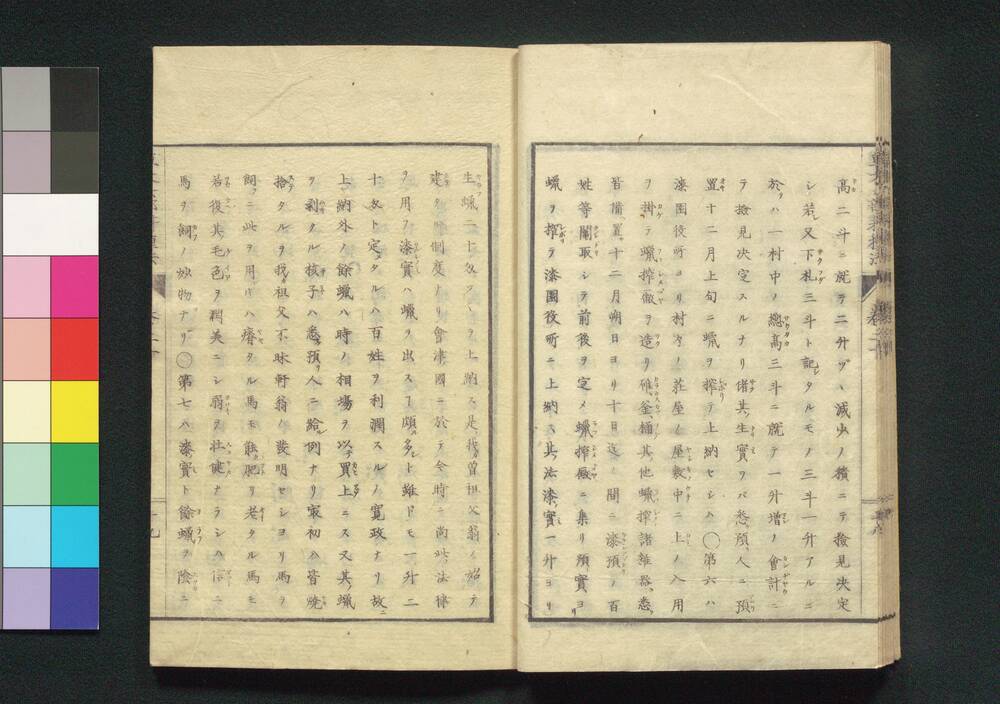 高二斗ニ就テ二升ヅヽ減少ノ積ニテ撿見決定
シ若シ又下札三斗ト記シタルモノ三斗一升アルニ
於テハ一村中ノ總高三斗ニ就テ一升増ノ會計ニ
テ撿見決定スルナリ偖其生實ヲバ悉ク預リ人ニ預ケ
置キ十二月上旬ニ蠟ヲ搾テ上納セシム〇第六ハ
漆園役所ヨリ村々ノ莊屋ノ屋敷中ニ上ノ入用
ヲ掛テ蠟搾廠ヲ造リ碓釜桶其他蠟搾諸雜器悉ク
皆備置キ十二月朔日ヨリ十日迄ノ間ニ漆預リノ百
姓等鬮取シテ前後ヲ定メ蠟搾廠ニ集リ預實ヨリ
蠟ヲ搾テ漆園役所ニ上納ス其法漆實一升ヨリ
生蠟二十匁ヅヽヲ上納ス是我曽祖父翁ノ始テ
建タル制度ノヨリ會津國ニ於テ今時ニ尚此法律
ヲ用フ漆實ハ蠟ヲ出スヿ頗多シト雖ドモ一升二
十匁ト定メタルハ百姓ヲ利潤スルノ寛政ナリ故ニ
上ヘ納外ノ餘蠟ハ時ノ相場ヲ以テ買上ニス又其蠟
ヲ剥タル核子ハ悉ク預リ人ニ給ル例ナリ家初ハ皆燒
捨タルヲ我祖父不昧軒翁ノ發明セシヨリ馬ヲ
飼フニ此ヲ用レバ瘠タル馬モ能肥リ老タル馬モ
若復其毛色ヲ潤美ニシ弱ヲ壮健ナラシム信ニ
馬ヲ飼フノ妙物ナリ〇第七ハ漆實ト餘蠟ヲ陰ニ